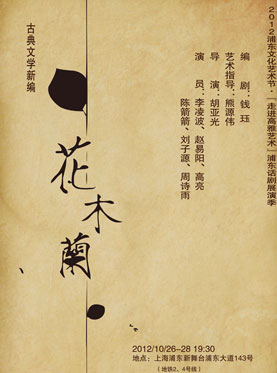 2012浦东文化艺术节·「走进高雅艺术」浦东话剧展演季
编　剧：钱珏
艺术指导：熊源伟
导　演：胡亚光
演　员：李凌波、赵易阳、高亮
陈箭箭、刘子源、周诗雨
古典文学新编
花木蘭
2012/10/26-28 19:30
地点：上海浦东新舞台浦东大道143号
（地铁2、4号线）